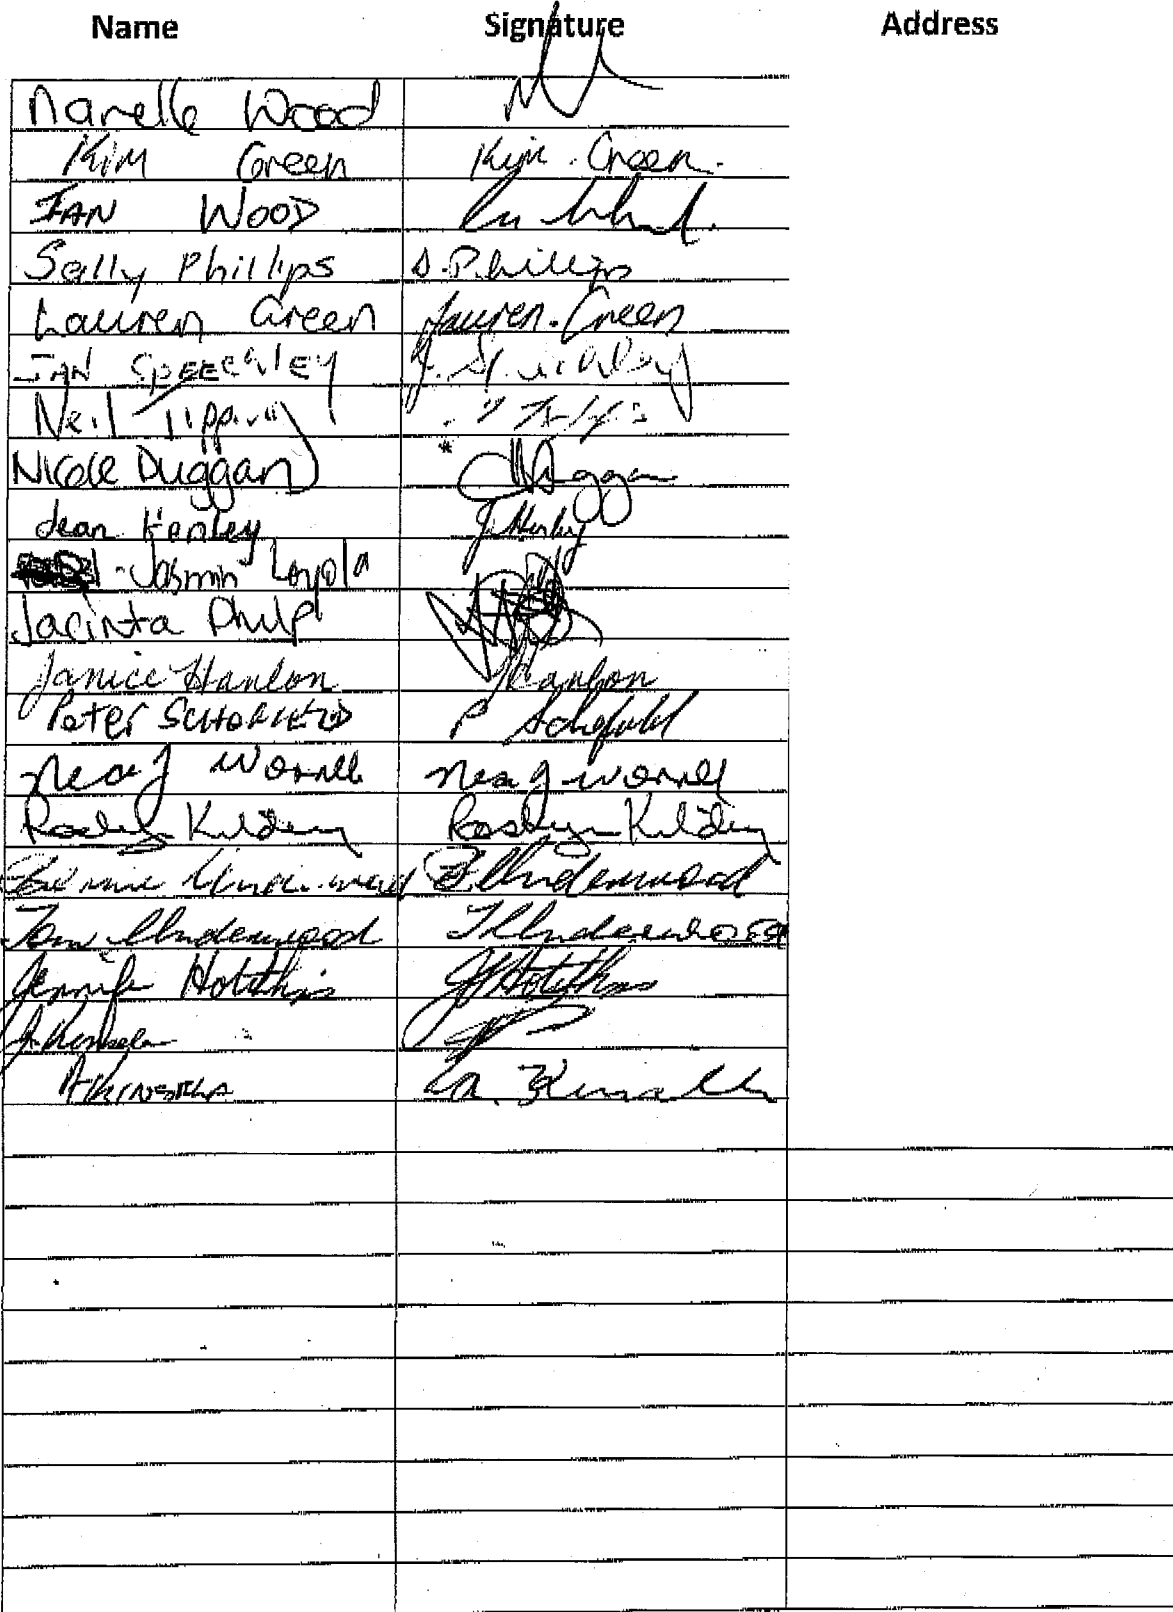 Name Signature Address
Narelle Wood
Kim Green Kim. Green.
IAN WOOD
Sally Phillips S. Phillips
Lauren Green Lauren. Green
JAN SPEECHLEY J. Speechley
Neil
Nicole Duggan Duggan
Jean Henley J Henley
Jasmin Loyola
Jacinta Philp
Janice Hanlon J Hanlon
Peter SCHOFIELD P Schofield
Nea J Worrell Nea J Worrell
Roslyn Kilderry Roslyn Kilderry
Underwood Underwood
Tom Underwood T Underwood
Jennifer Hotchkis J Hotchkis
J. Kinsela
A KINSELA Kinsella